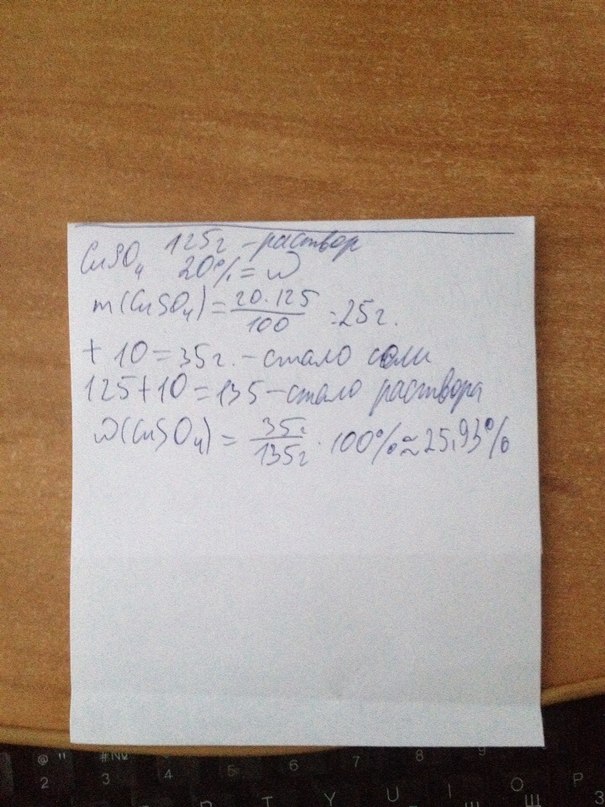 CuSO₄ 125г - раствор
20% = ω
m(CuSO₄) = 20·125/100 = 25г.
+ 10 = 35г. - стало соли
125 + 10 = 135 - стало раствора
ω(CuSO₄) = 35г/135г · 100% ≈ 25,93%
@ " #№
2 3 4 5 6 7 8 9
R T Y U I O P
Ш Щ З